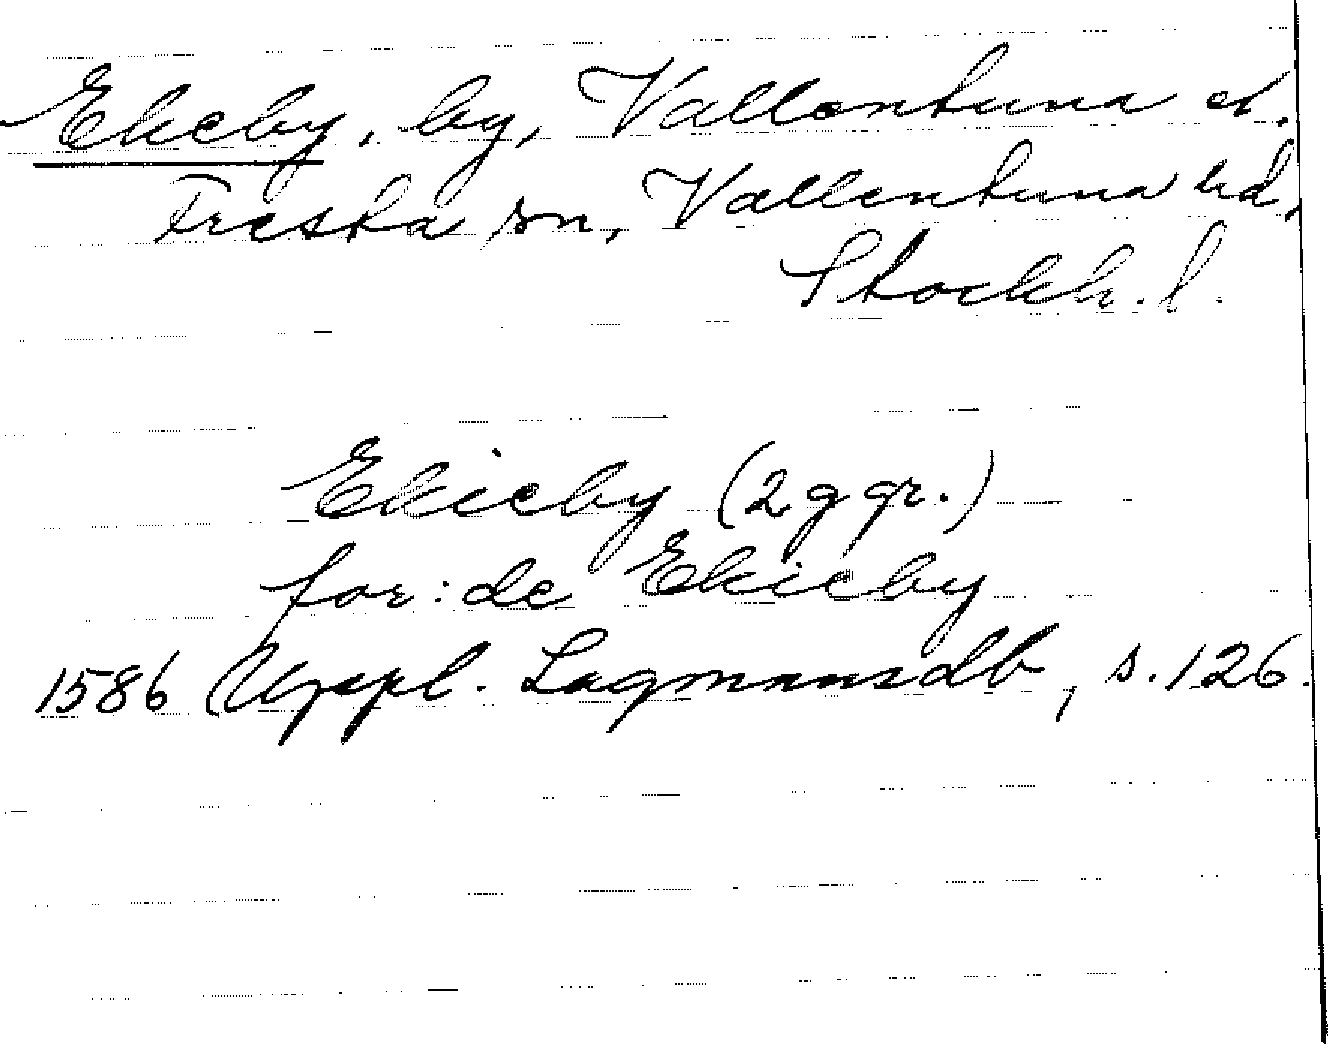 Ekeby, by, Vallentuna
Fresta sn, Vallentuna hd,
Stockh. l.
Ekieby (2 ggr.)
for: de Ekieby
1586 Uppl. Lagmansdb, s. 126.